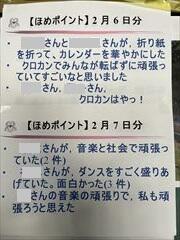 【ほめポイント】2月6日分
・ さんと さんが、折り紙
を折って、カレンダーを華やかにした
・ クロカンでみんなが転ばずに頑張っ
ていてすごいなと思いました
・ さん、 さん、
クロカンはやっ！
【ほめポイント】2月7日分
・ が、音楽と社会で頑張っ
ていた(2件)
・ が、ダンスをすごく盛りあ
げていた。面白かった(3件)
・ さんの音楽の頑張りで、私も頑
張ろうと思えた